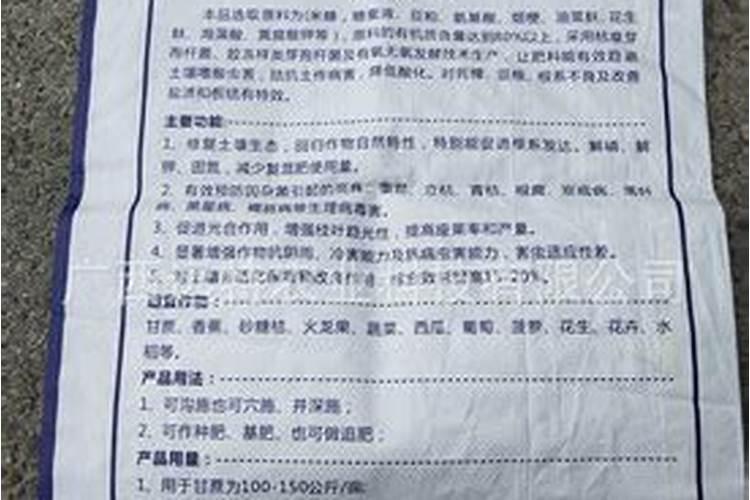 本品选取原料为(米糠，糖蜜液、豆粕、氨基酸、烟梗、油菜麸、花生
麸、海藻酸、黄腐酸钾等)，原料的有机质含量达到80%以上，采用枯草芽
孢杆菌、胶冻样类芽孢杆菌及有氧无氧发酵技术生产，让肥料能有效趋避
土壤嗜酸虫害，拮抗土传病害，降低酸化。对死棵、豆根、根系不良及改善
盐渍和板结有特效。
主要功能:
1、修复土壤生态，回归作物自然特性，特别能促进根系发达。解磷、解
钾、固氮，减少复混肥使用量。
2、有效预防因杂菌引起的 立枯、青枯、根腐、
病、黑星病、 病害。
3、促进光合作用，增强枝叶趋光性，提高座果率和产量。
4、显著增强作物抗阴雨、冷害能力及抗病虫害能力，害虫适应性差。
5、 15-20%。
适宜作物:
甘蔗、香蕉、砂糖桔、火龙果、蔬菜、西瓜、葡萄、菠萝、花生、花卉、水
稻等。
产品用法:
1、可沟施也可穴施、并深施；
2、可作种肥、基肥、也可做追肥；
产品用量:
1、用于甘蔗为100-150公斤/亩;
广西 有限公司